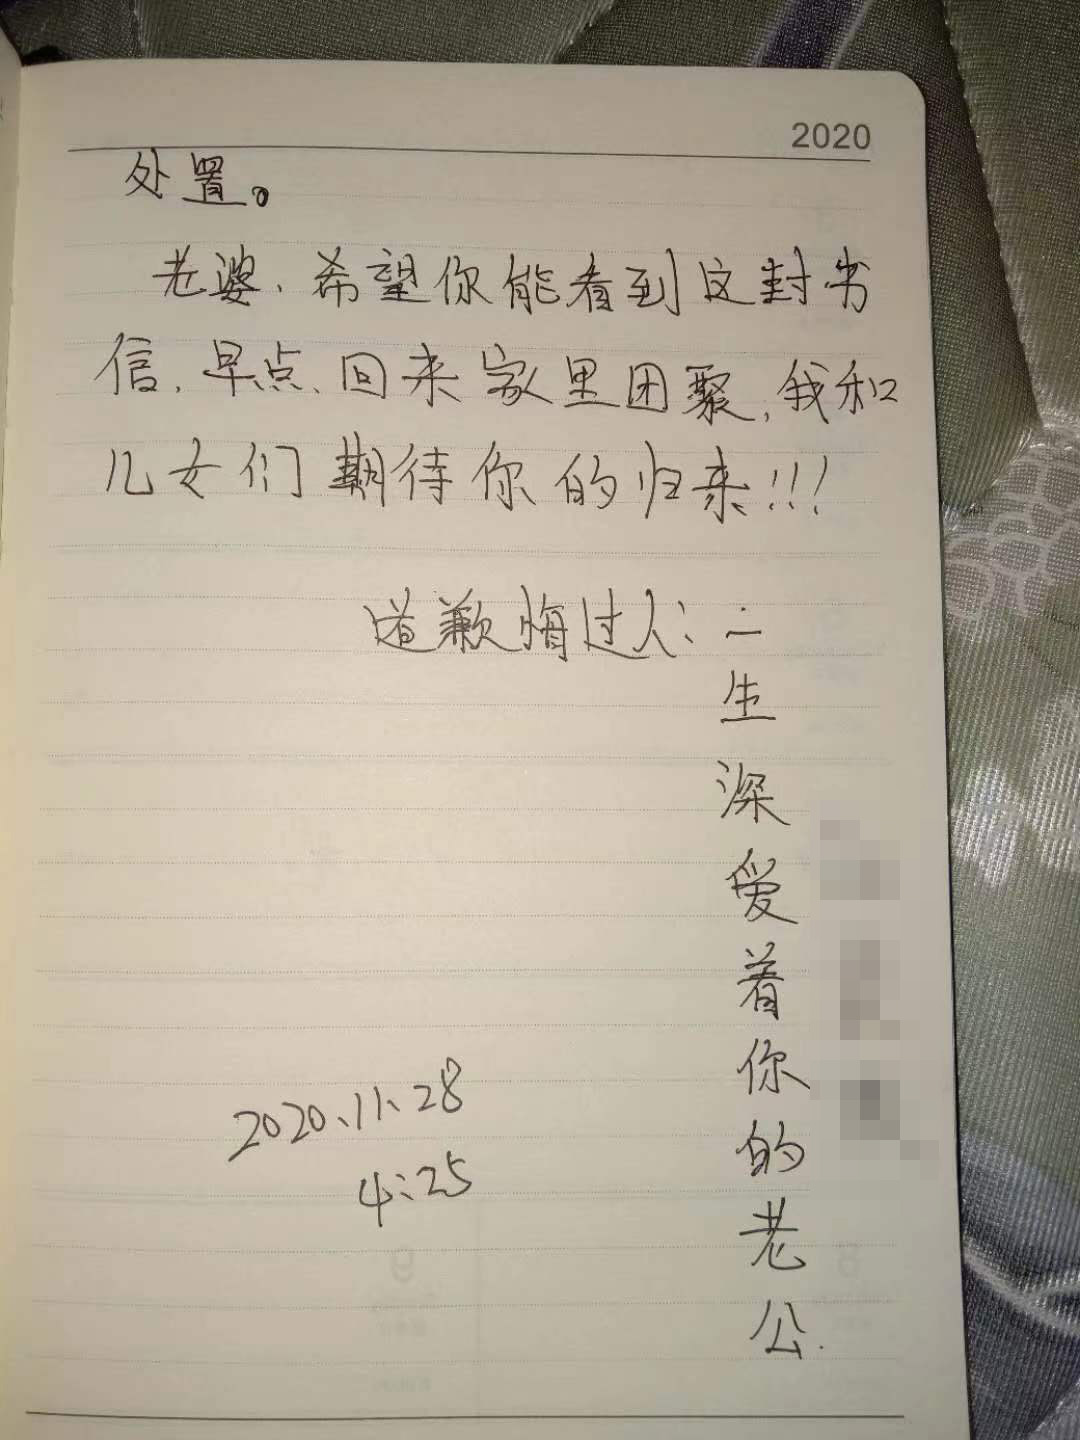 2020
处置。
老婆，希望你能看到这封书
信，早点回来家里团聚，我和
儿女们期待你的归来!!!
道歉悔过人：一
生
深
爱
着
你
的
老
公.
2020.11.28
4:25